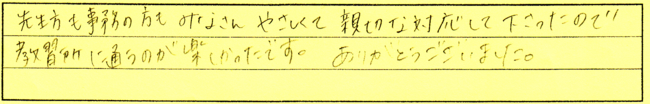 先生方も事務の方もみなさんやさしくて親切な対応して下さったので
教習所に通うのが楽しかったです。 ありがとうございました。